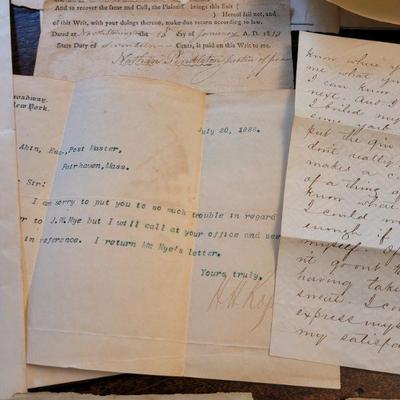 And to recover the same and Cost, the Plaintiff brings this Suit
Hereof fail not, and
of this Writ, with your doings thereon, make due return according to law.
Dated at the 16 day of January A. D. 1818
State Duty of Seventeen Cents, is paid on this Writ to me.
Nathan Pendleton Justice of peace
roadway,
ew York.
July 20, 1886.
Akin, Esq., Post Master,
Fairhaven, Mass.
Sir:
I am sorry to put you to so much trouble in regard
to J.M.Nye but I will call at your office and see
in reference. I return Mr Nye's letter.
Yours, truly,
know where
me what you
I can know
next. And I
I boiled my
some
But the
don't really
makes a c
of a thing of
know what
I could m
enough if
myself of
n't go on t
having take
sweat. I co
express mys
my satisfa